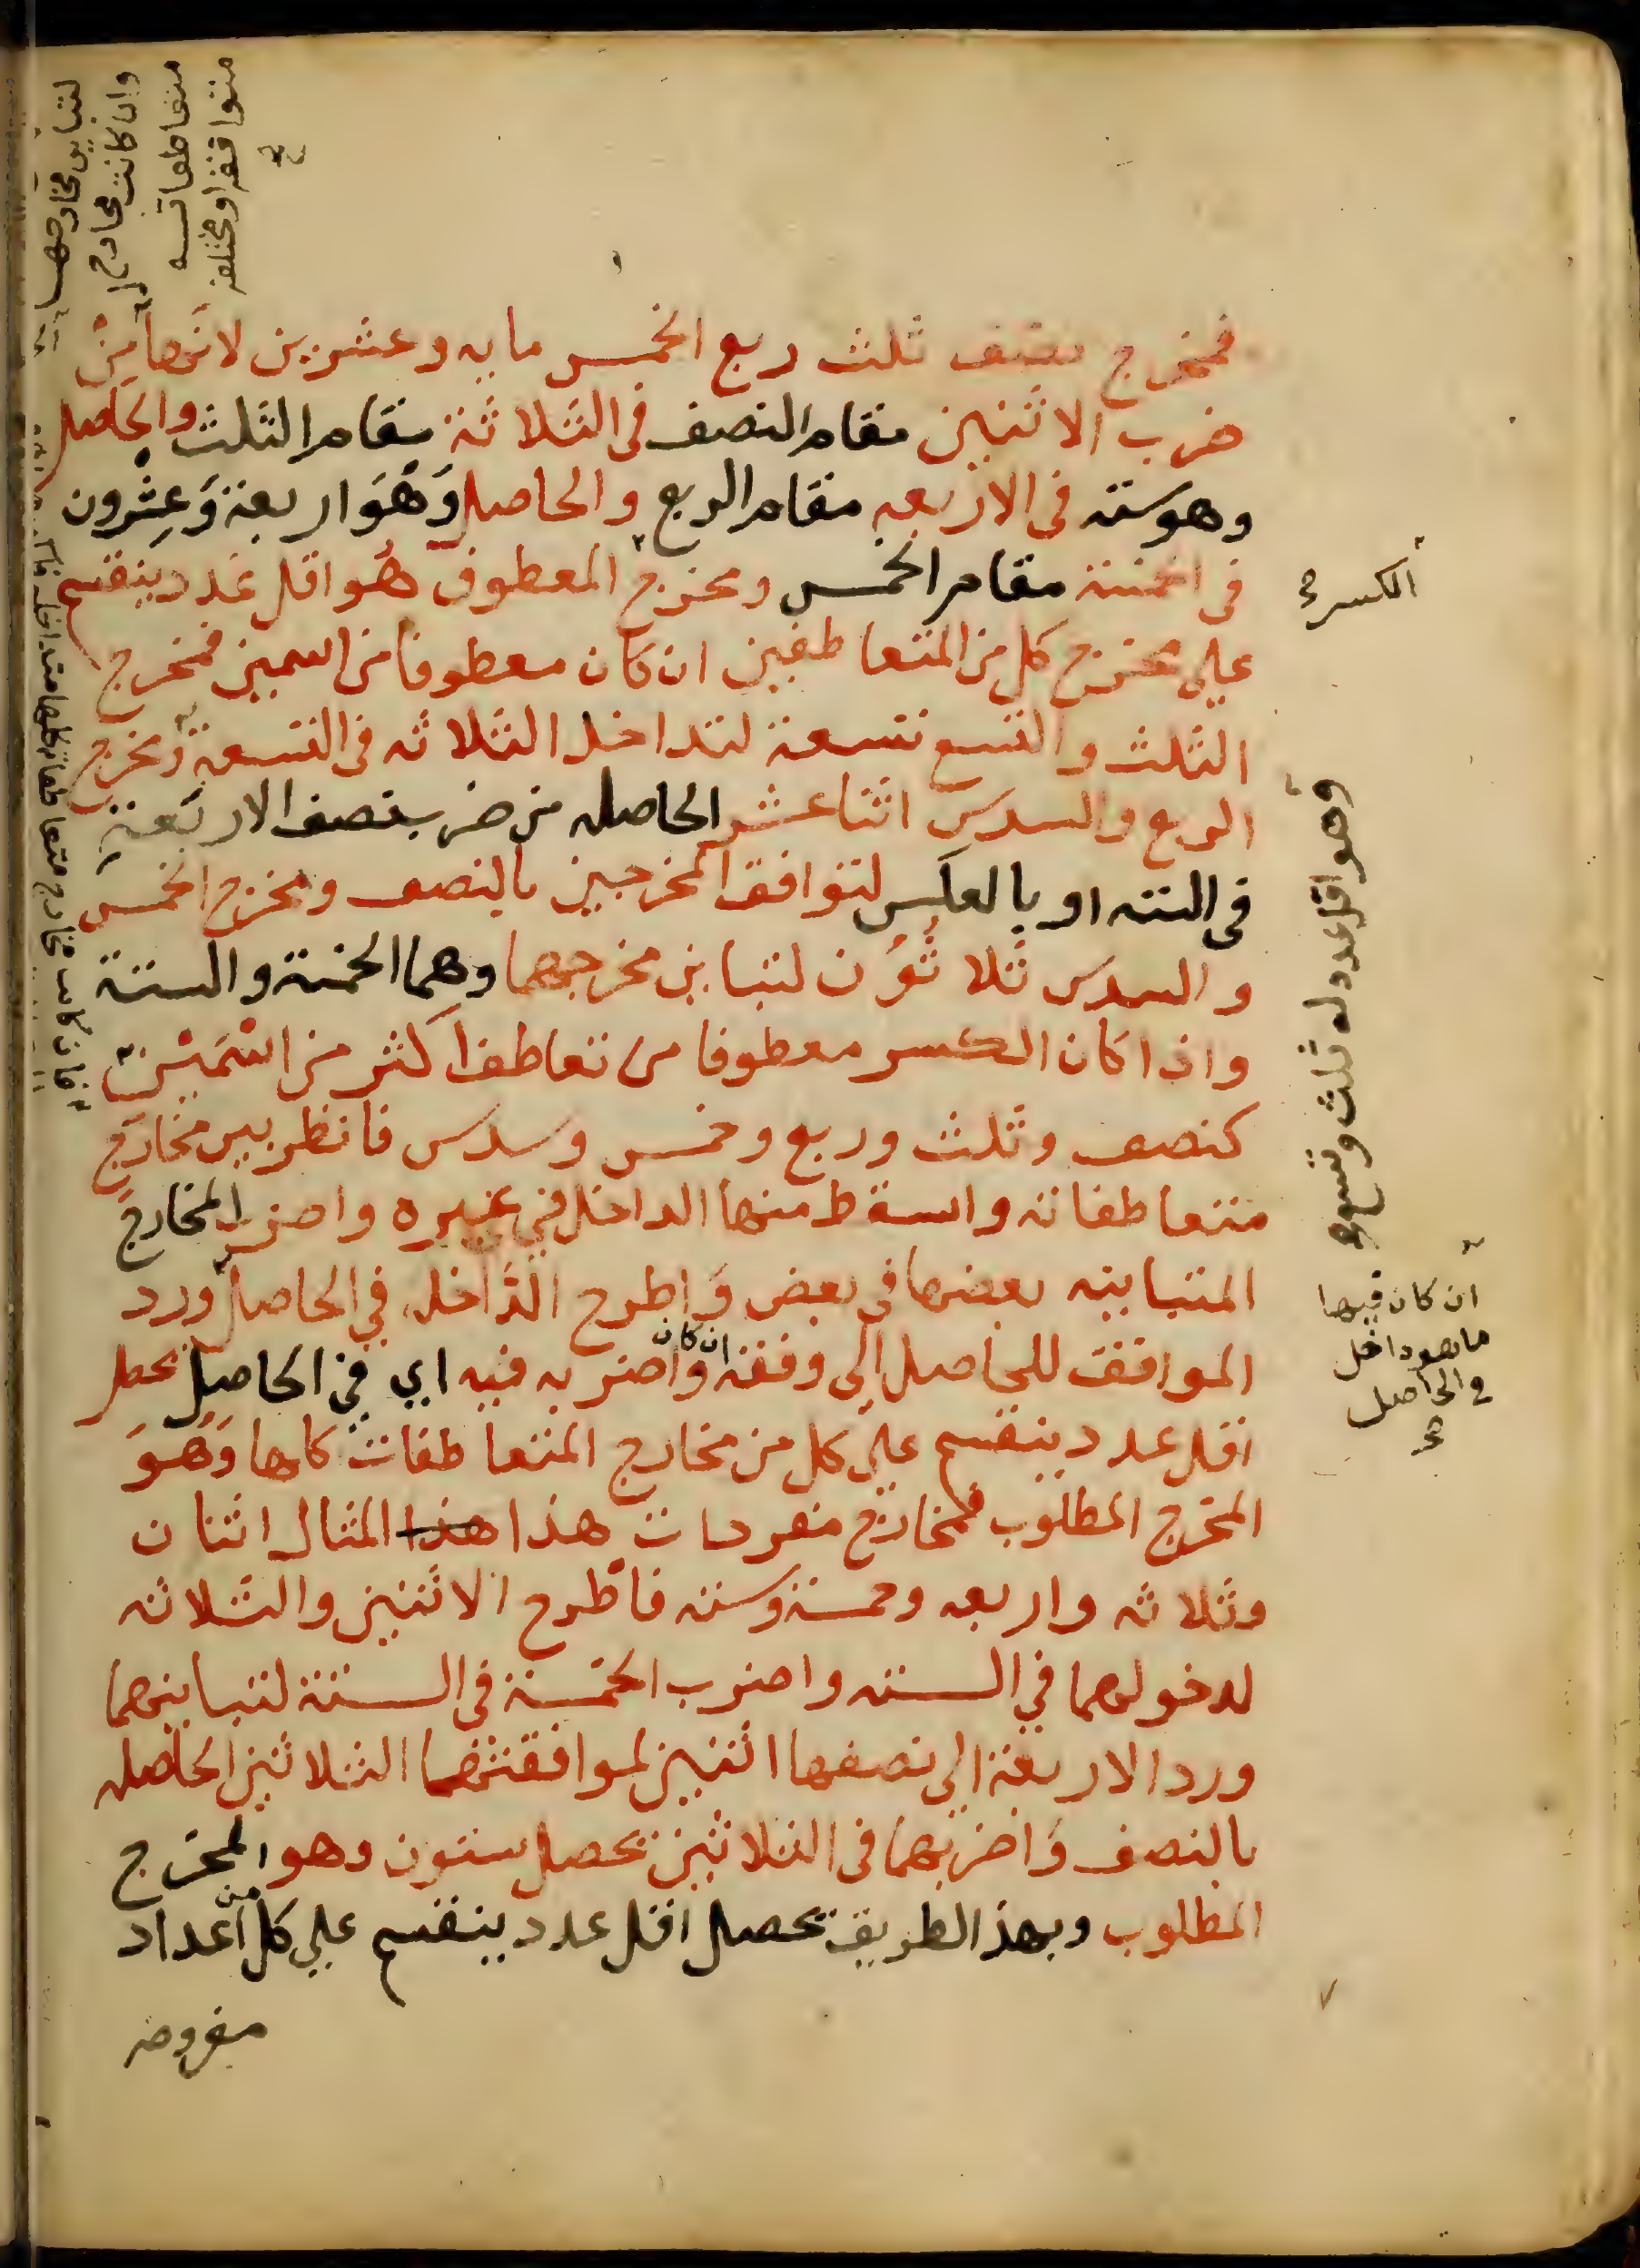 فمخرج نصف ثلث ربع الخمس مايه وعشرين لانها من
ضرب الاثنين مقام النصف فى الثلاثة مقام الثلث والحاصل
وهو ستة فى الاربعه مقام الربع والحاصل وَهُوَ اربعة وَعِشرون
فى الخمسة مقام الخمس ومخرج المعطوف هُو اقل عَدد ينقسم
على مخرج كل من المتعاطفين ان كان معطوفا من اسمين فمخرج
الثلث والتسع تسعة لتداخل الثلاثه فى التسعة ومخرج
الربع والسدس اثنا عشر الحاصله من ضرب نصف الاربَعة
فى الستة او بالعكس لتوافق المخرجين بالنصف ومخرج الخمس
والسدس ثلاثُوُن لتباين مخرجيهما وهما الخمسة والستة
واذا كان الكسر معطوفا من تعاطف اكثر من اسْمَيْن
كنصف وثلث وربع وخمس وسدس فانظر بين مخارج
متعاطفاته واسقط منها الداخل في غيره واضرب المخارج
المتباينه بعضها فى بعض وَاطرح الدَّاخل في الحاصل ورد
الموافق للحاصل الى وفقه ان كان واضربه فيه اي في الحاصل يحصل
اقل عدد ينقسم على كل من مخارج المتعاطفات كلها وَهُوَ
المخرج المطلوب فمخارج مفردات هذا هذا المثال اثنان
وثلاثه واربعه وخمسة وسته فاطرح الاثنين والثلاثه
لدخولهما في السته واضرب الخمسة فى الستة لتباينهما
ورد الاربعة الى نصفها اثنين لموافقتهما الثلاثين الحاصله
بالنصف وَاضربهما فى الثلاثين تحصل ستون وهو المخرج
المطلوب وبهذ الطريقة تحصل اقل عدد ينقسم على كل من اعداد
مفروضه
الكسر
وهو اقل عدد له ثلث وتسع
ان كان فيها
ما هو داخل
في الحاصل
لتباين مخارجها
وان كانت مخارج
متعاطفاته
متوافقة او مختلفة
فان كانت مخارج متعاطفاته كلها متداخلة